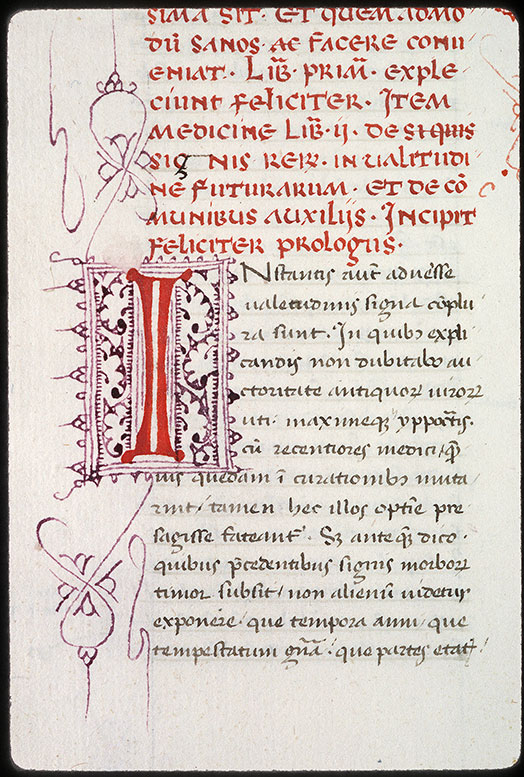 SIMA SIT · ET QUEM ADMO
DŪ SANOS · AC FACERE CONUE
NIAT · LIB̄ · PRIM̄ · EXPLE
CIUNT FELICITER · ITEM
MEDICINE LIB̄ · II · DE SIQUIS
SIGNIS RERꝜ · IN UALITUDI
NE FUTURARUM · ET DE CŌ
MUNIBUS AUXILIJS · INCIPIT
FELICITER PROLOGUS ·
INstantis aut̄ aduesse
ualetudinis signa cōplu
ra sunt · In quibꝯ expli
candis non dubitabo au
ctoritate antiquoꝝ uiroꝝ
uti · maximeqꝫ yppoc̄tis ·
cū recentiores medici · qꝫ̄
uis quedam ī curationibꝯ muta
rint / tamen hec illos optīe pre
sagisse fateant᷑ · Sꝫ ante qꝫ̄ dico ·
quibus p̄cedentibus signis morboꝝ
timor subsit / non alienū uidetur
exponere · que tempora anni · que
tempestatum gn̄ā · que partes etat